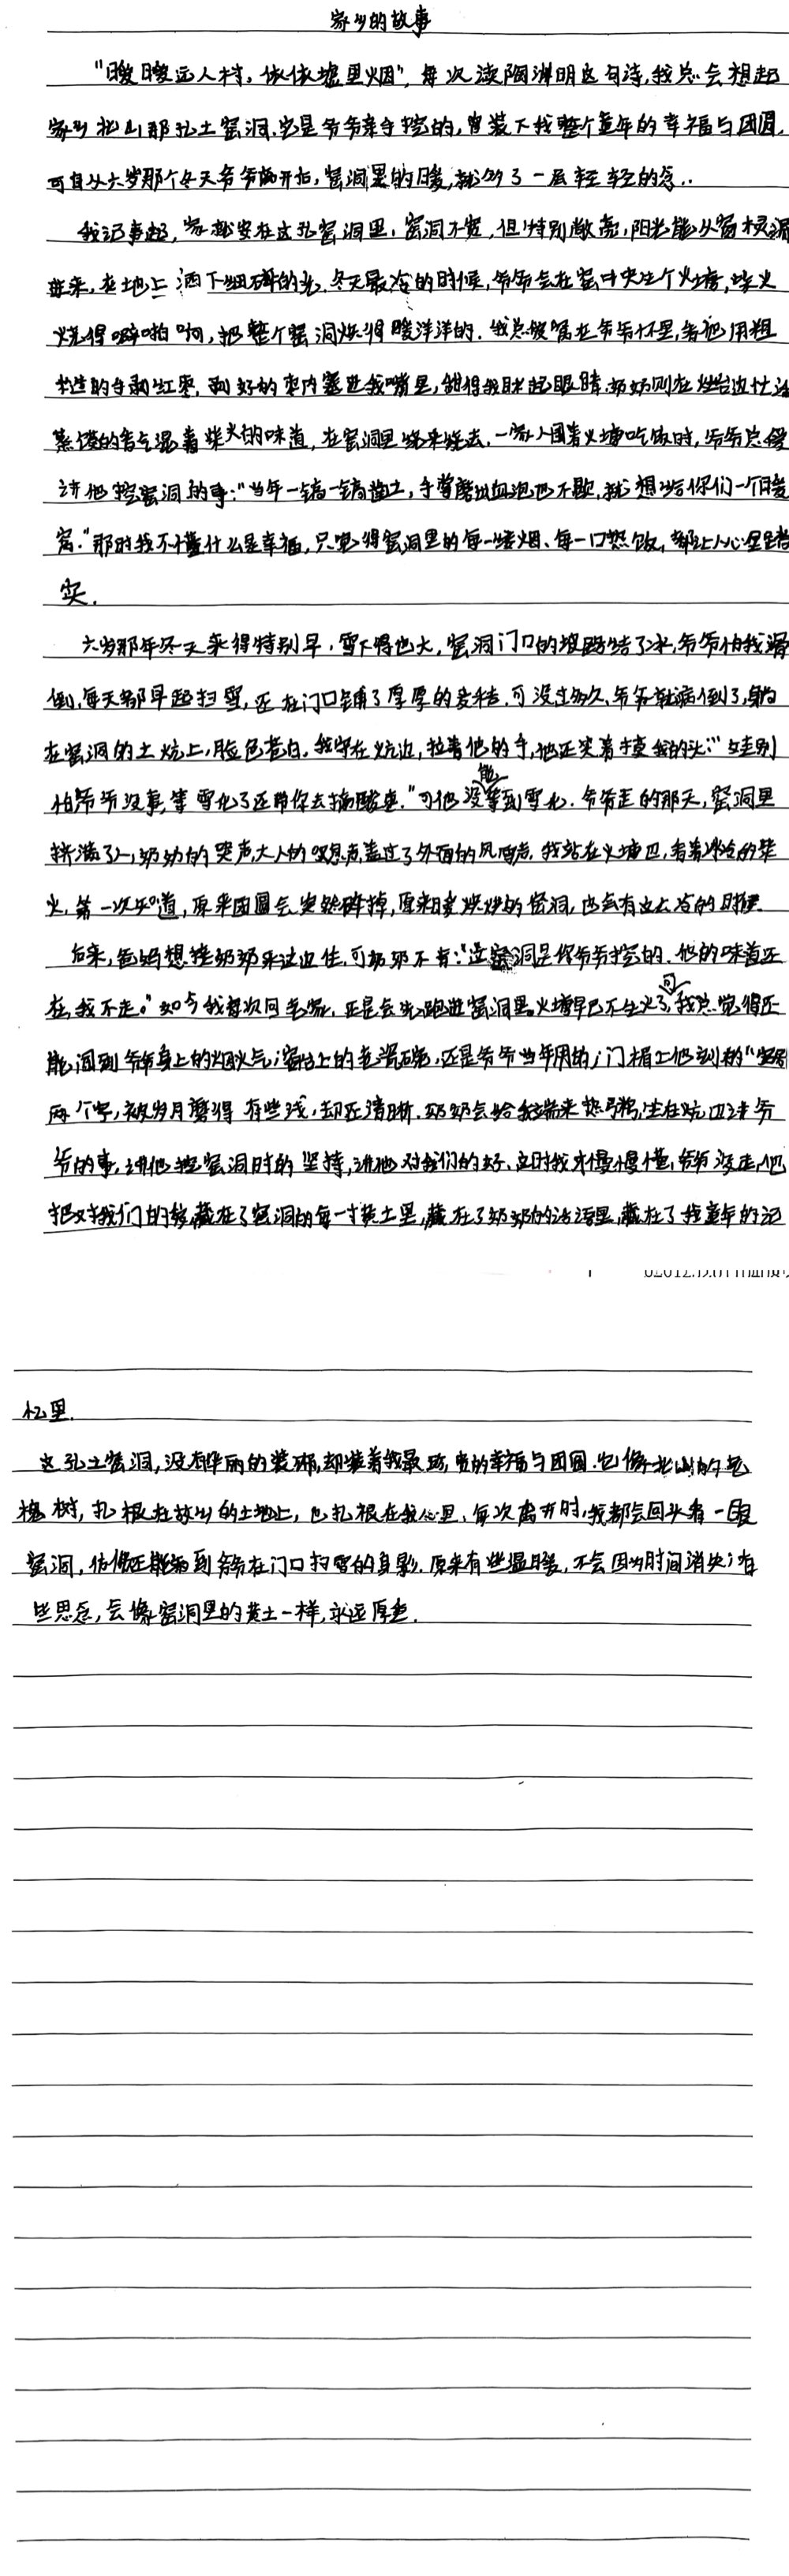 家乡的故事
"暧暧远人村，依依墟里烟"，每次读陶渊明这句诗，我总会想起
家乡北山那孔土窑洞。它是爷爷亲手挖的，曾装下我整个童年的幸福与团圆，
可自从六岁那个冬天爷爷离开后，窑洞里的暖，就多了一层轻轻的念..
我记事起，家就安在这孔窑洞里，窑洞不宽，但特别敞亮，阳光能从窗棂漏
进来，在地上洒下细碎的光。冬天最冷的时候，爷爷会在窑中央生个火塘，柴火
烧得噼啪响，把整个窑洞烘得暖洋洋的。我总被窝在爷爷怀里，看他用粗
糙的手剥红枣，剥好的枣肉塞进我嘴里，甜得我眯起眼睛。奶奶则在灶台边忙活
蒸馍的香气混着柴火的味道，在窑洞里绕来绕去。一家人围着火塘吃饭时，爷爷总爱
讲他挖窑洞的事："当年一镐一镐凿土，手掌磨出血泡也不歇，就想给你们一个暖
窝。"那时我不懂什么是幸福，只觉得窑洞里的每一缕烟、每一口热饭，都让人心里踏
实。
六岁那年冬天来得特别早，雪下得也大，窑洞门口的坡路结了冰，爷爷怕我滑
倒，每天都早起扫雪，还在门口铺了厚厚的麦秸。可没过多久，爷爷就病倒了，躺
在窑洞的土炕上，脸色苍白。我守在炕边，拉着他的手，他还笑着摸我的头："娃别
怕爷爷没事，等雪化了还带你去摘酸枣。"可他没能等到雪化。爷爷走的那天，窑洞里
挤满了人，奶奶的哭声，大人的叹息声盖过了外面的风雪声。我站在火塘边，看着冰冷的柴
火，第一次知道，原来团圆会突然碎掉，原来暖烘烘的窑洞，也会有这么冷的时候。
后来，爸妈想接奶奶来这边住，可奶奶不肯："这窑洞是你爷爷挖的，他的味道还
在，我不走。"如今我每次回老家，还是会先跑进窑洞里。火塘早已不生火了，可我总觉得还
能闻到爷爷身上的烟火气；窗台上的老瓷碗，还是爷爷当年用的；门楣上他刻的"安居
两个字，被岁月磨得有些浅，却还清晰。奶奶会给我端来热粥，坐在炕边讲爷
爷的事，讲他挖窑洞时的坚持，讲他对我们的好。这时我才慢慢懂，爷爷没走，他
把对我们的爱，藏在了窑洞的每一寸黄土里，藏在了奶奶的话语里，藏在了我童年的记
忆里。
这孔土窑洞，没有华丽的装饰，却装着我最珍贵的幸福与团圆。它像北山的老
槐树，扎根在故乡的土地上，也扎根在我心里。每次离开时，我都会回头看一眼
窑洞，仿佛还能看到爷爷在门口扫雪的身影。原来有些温暖，不会因为时间消失；有
些思念，会像窑洞里的黄土一样，永远厚重。